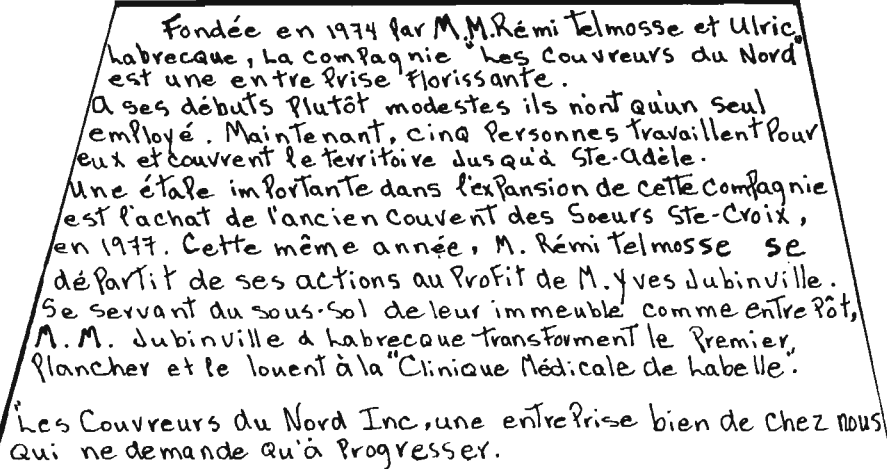 Fondée en 1974 par M.M.Rémi Telmosse et Ulric
Labrecque, La compagnie "Les Couvreurs du Nord"
est une entreprise florissante.
A ses débuts plutôt modestes ils n'ont qu'un seul
employé. Maintenant, cinq personnes travaillent pour
eux et couvrent le territoire jusqu'à Ste-Adèle.
Une étape importante dans l'expansion de cette compagnie
est l'achat de l'ancien couvent des Soeurs Ste-Croix,
en 1977. Cette même année, M. Rémi Telmosse se
départit de ses actions au profit de M. Yves Jubinville.
Se servant du sous-sol de leur immeuble comme entrepôt,
M.M. Jubinville & Labrecque transforment le premier
plancher et le louent à la "Clinique Médicale de Labelle".
"Les Couvreurs du Nord Inc, une entreprise bien de chez nous
qui ne demande qu'à progresser.